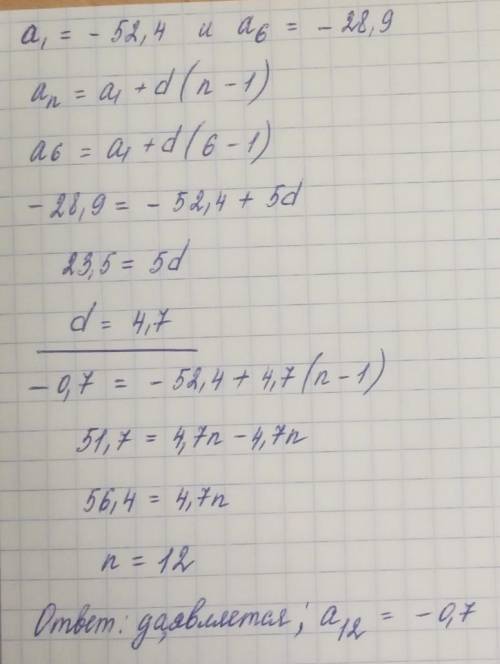 a₁ = - 52,4 и a₆ = - 28,9
aₙ = a₁ + d(n - 1)
a₆ = a₁ + d(6 - 1)
- 28,9 = - 52,4 + 5d
23,5 = 5d
d = 4,7
- 0,7 = - 52,4 + 4,7(n - 1)
51,7 = 4,7n - 4,7n
56,4 = 4,7n
n = 12
Ответ: да,является; a₁₂ = - 0,7